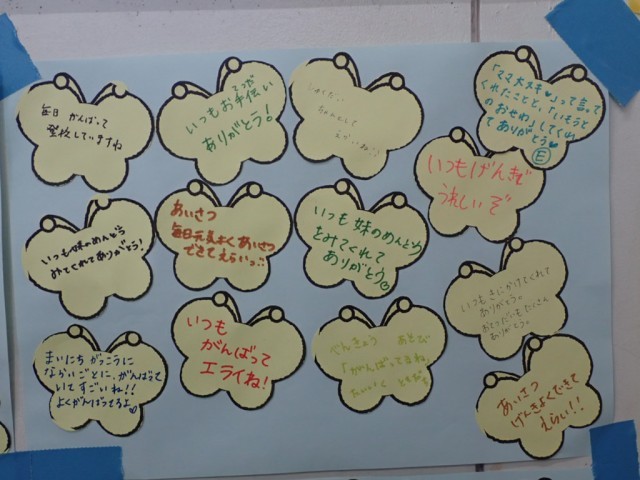 毎日 がんばって
登校していますね
いつもお手伝い
ありがとう!
「ママ大スキ♥」って言って
くれたことと、「いもうと
のおせわ」してくれ
てありがとう♥
E
いつもげんきで
うれしいぞ
いつも妹のめんどう
みてくれてありがとう!
あいさつ
毎日元気よくあいさつ
できてえらいっ
いつも妹のめんどう
をみてくれて
ありがとう
いつもきにかけてくれて
ありがとう。
おてつだいもたくさん
ありがとう。
まいにち がっこうに
なかいごとに、がんばって
いてすごいね!!
よくがんばってるよ
いつも
がんばって
エライね!
べんきょう あそび
「がんばってるね」
ともだち
あいさつ
げんきよくできて
えらい!!